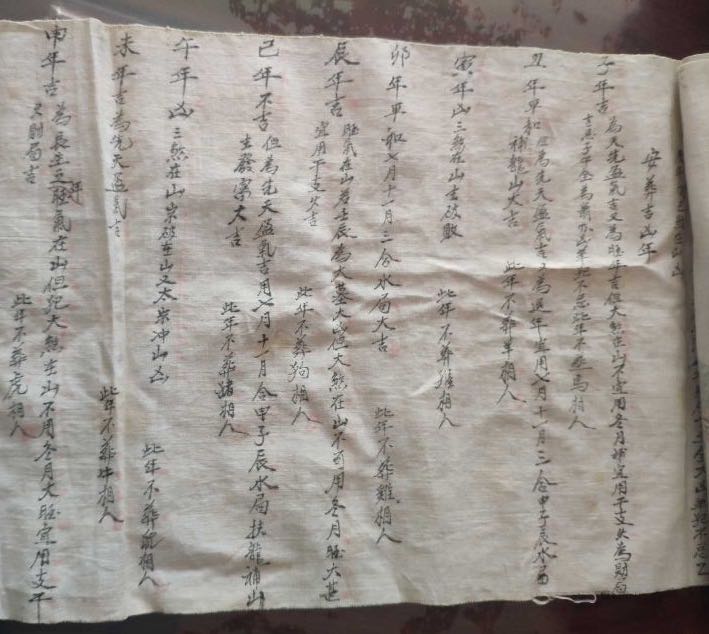 安葬吉凶年
子年吉 為天先盈氣吉又為旺年吉但大煞在山不宜用冬月
宜用干支火為財局
此年不葬馬相人
丑年平和 但為先天盈氣吉又為進年宜用七月十一月三合申子辰水局
補龍山大吉 此年不葬羊相人
寅年凶 三煞在山主破敗 此年不葬猴相人
卯年平和 七月十一月三合水局大吉 此年不葬雞相人
辰年吉 旺氣在山君壬辰為大墓大盛但大煞在山不可用冬月旺大甚
宜用干支火吉 此年不葬狗相人
巳年不吉 但為先天盈氣吉用七月十一月合申子辰水局扶龍補山
主發家大吉 此年不葬豬相人
午年凶 三煞在山歲破在山又太歲冲山凶 此年不葬鼠相人
未年吉 為先天盈氣吉 此年不葬牛相人
申年吉 為長生年又旺氣在山但犯大煞在山不用冬月大旺宜用支干
火財局吉 此年不葬虎相人